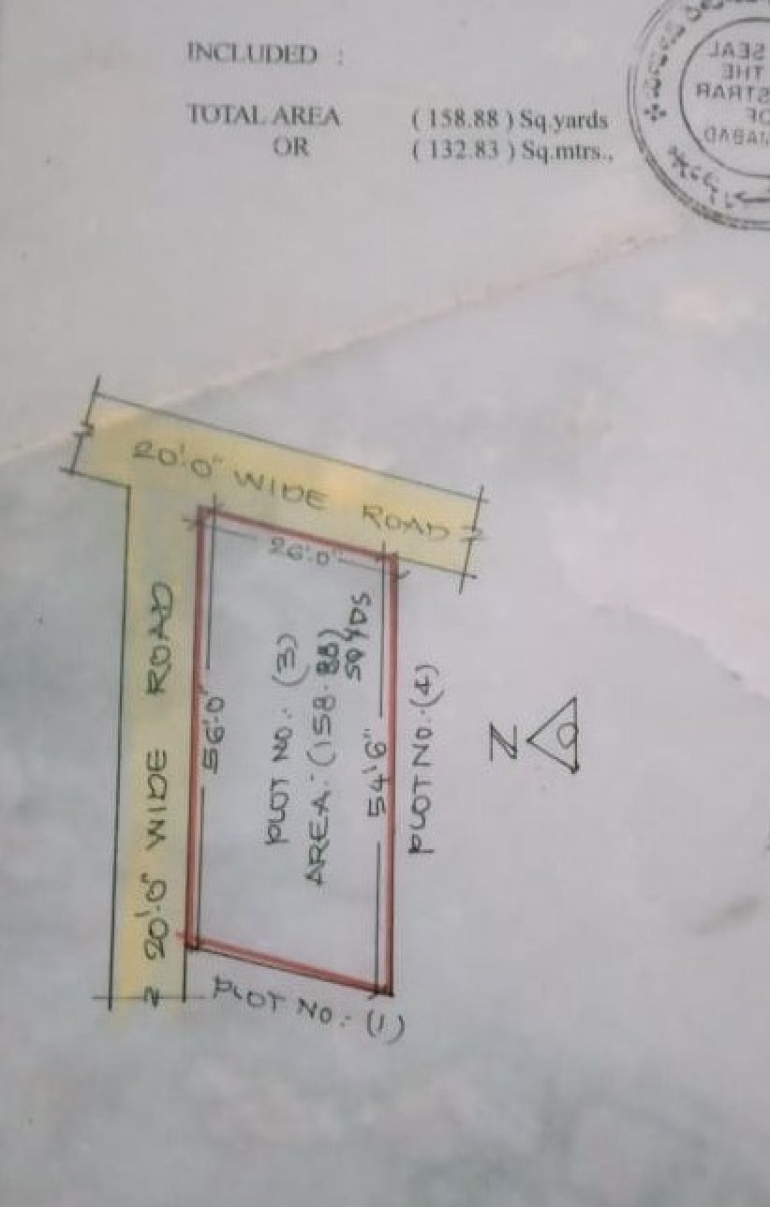 INCLUDED :
TOTAL AREA ( 158.88 ) Sq.yards
OR ( 132.83 ) Sq.mtrs.,
SEAL
THE
OF
20'-0" WIDE ROAD
26'-0"
20'-0" WIDE ROAD
56'-0"
PLOT NO.: (3)
AREA: (158.88)
SQ YDS
54'6"
PLOT NO.:(4)
N
PLOT NO.: (1)